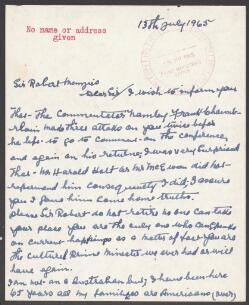 No name or address
given
13th July 1965
Sir Robert Menzies
Dear Sir I wish to inform you
That - The Commentator namely Frank Chamber-
lain made three attacks on you before
he left - to go to comment on the conference
and again on his return, I was very surprised
That - Mr Harold Holt or Mr McEwan did not -
reprimand him consequently I did, I assure
you I gave him some home truths.
please Sir Robert do not retire no one can take
your place you are the only one who can speak
on current happenings as a matter of fact you are
The cultured Prime Minister we ever had or will
have again.
I am not - an Australian but I have been here
65 years all my family are Americans (over)